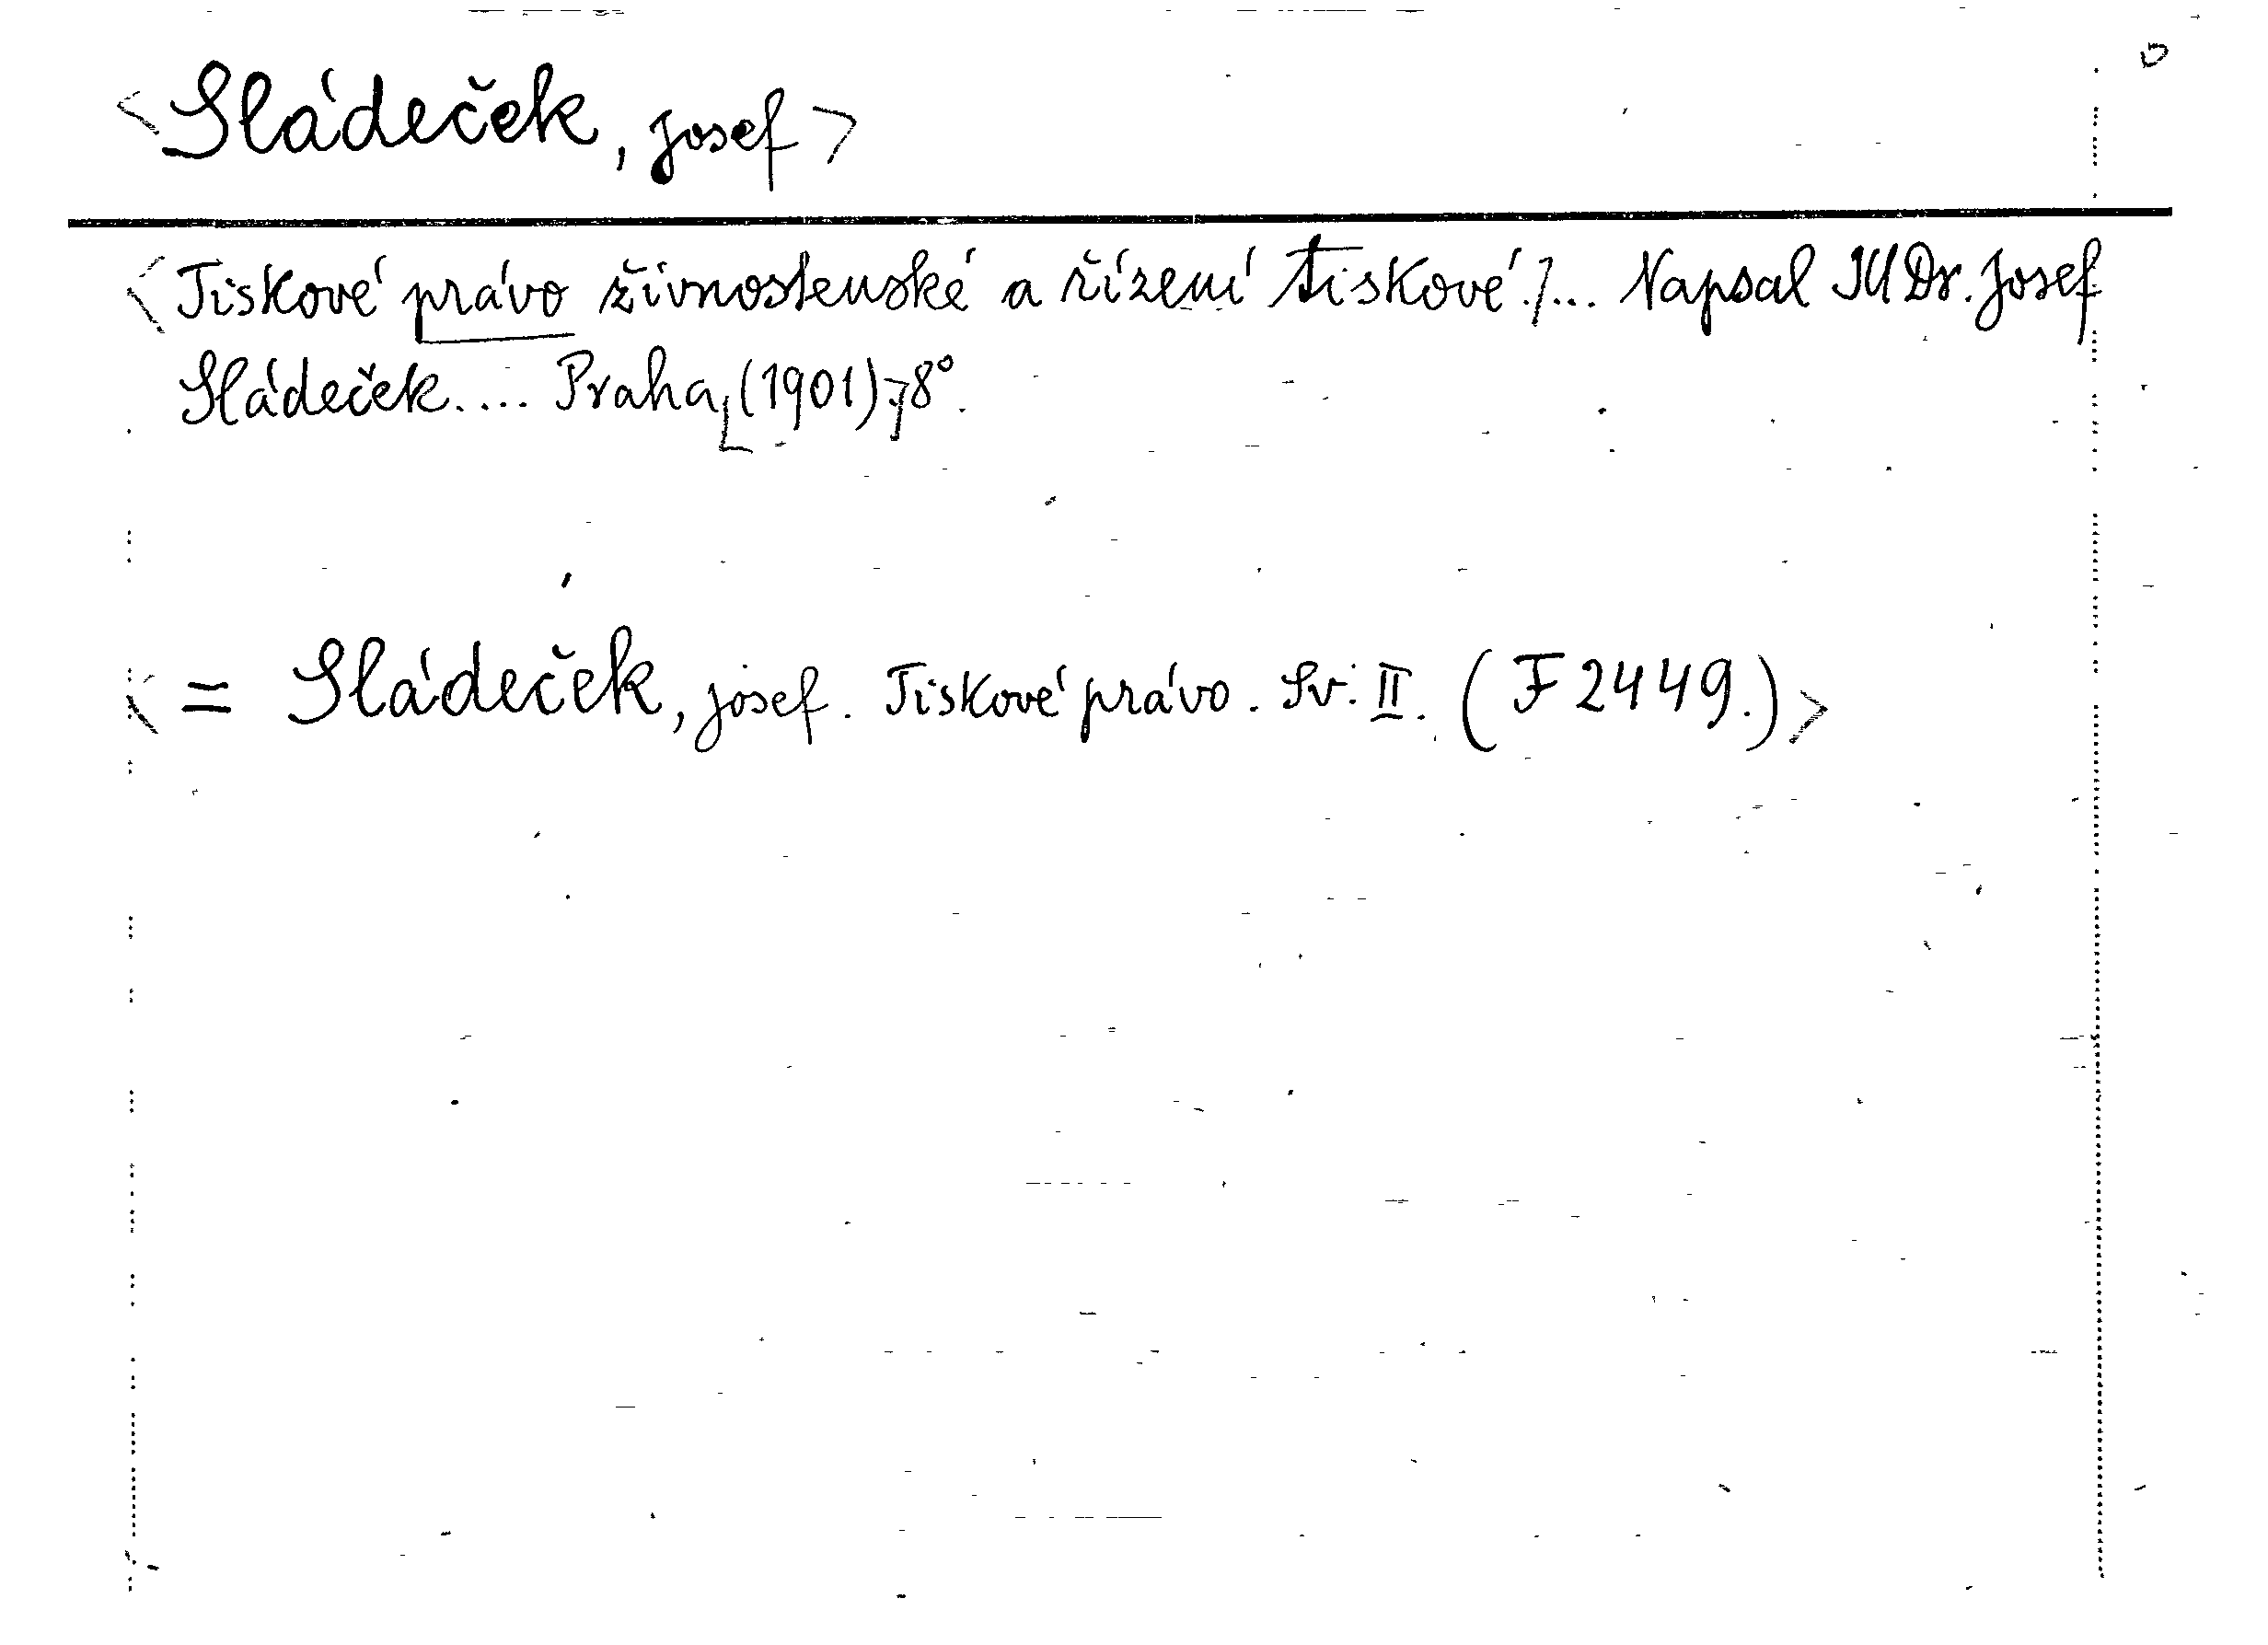 <Sládeček, Josef>
<Tiskové právo živnostenské a řízení tiskové./... Napsal JUDr. Josef
Sládeček.... Praha, (1901). 8°.
<= Sládeček, Josef. Tiskové právo. Sv. II. (F 2449.)>